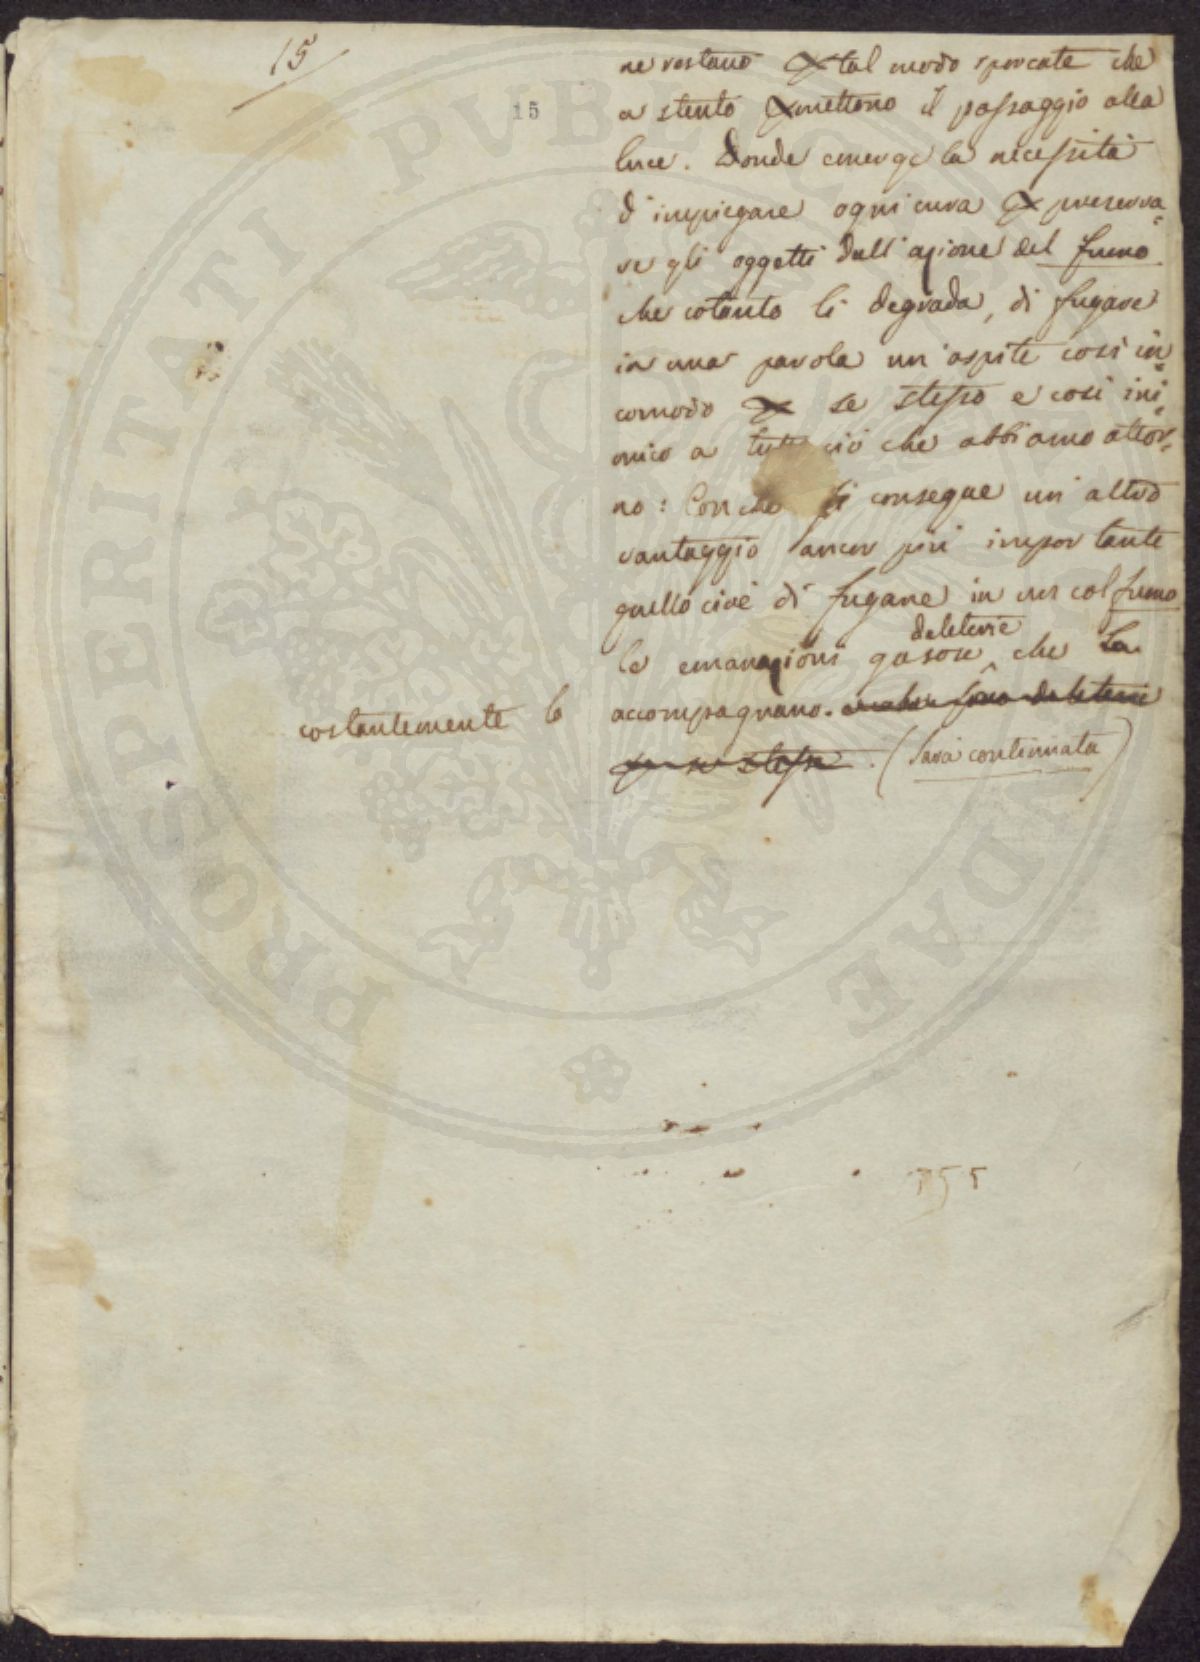 15
15
ne restano p tal modo sporcate che
a stento pmettono il passaggio alla
luce. Donde emerge la necessità
d'impiegare ogni cura p preserva=
re gli oggetti dall'azione del fumo
che cotanto li degrada, di fugare
in una parola un'ospite così in=
comodo p se stesso e così ini=
mico a tutto ciò che abbiamo attor=
no: Con che si consegue un'altro
vantaggio ancor più importante
quello cioè di fugare in un col fumo
deleterie
le emanazioni gasose che lo
costantemente lo
accompagnano. deleterie
per se stesse. (Sarà continuata)
755
PROSPERITATI PVBLICAE